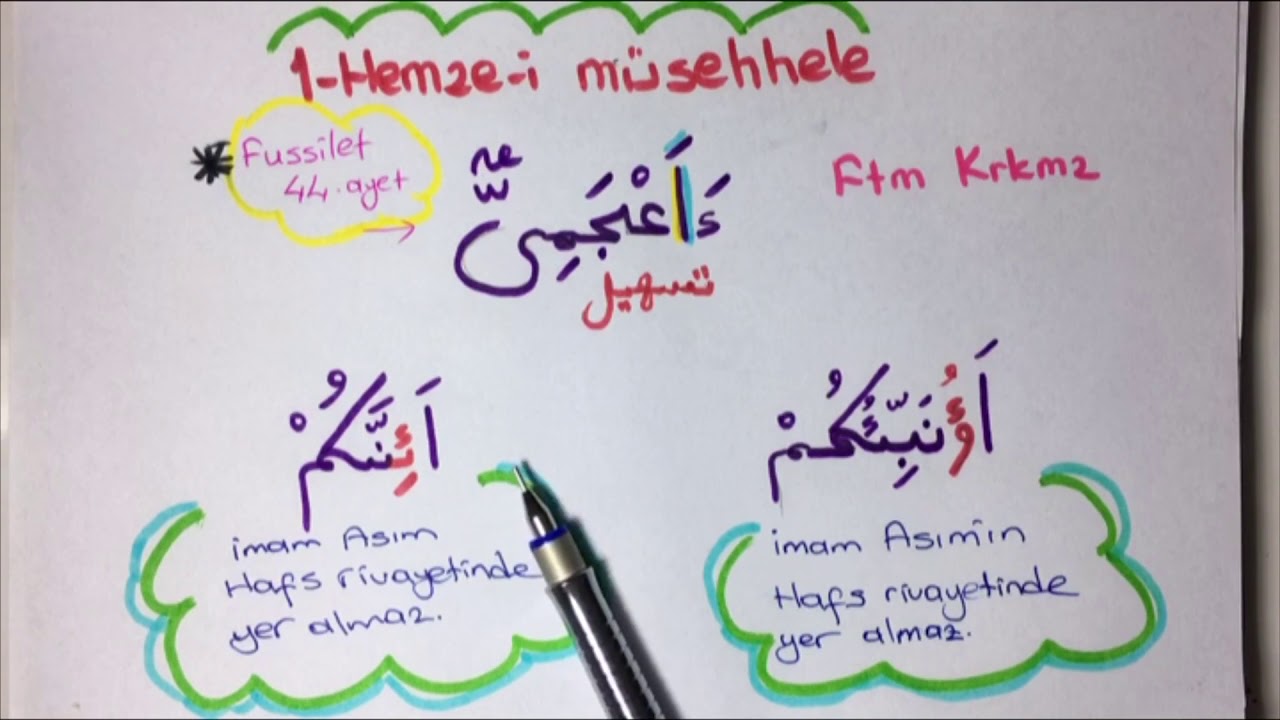 1-Hemze-i müsehhele
* Fussilet
44.ayet
ءَاَعْجَمِىٌّ
Ftm Krkmz
تسهيل
اَئِنَّكُمْ
اَؤُنَبِّئُكُمْ
imam Asım
Hafs rivayetinde
yer almaz.
imam Asım'ın
Hafs rivayetinde
yer almaz.